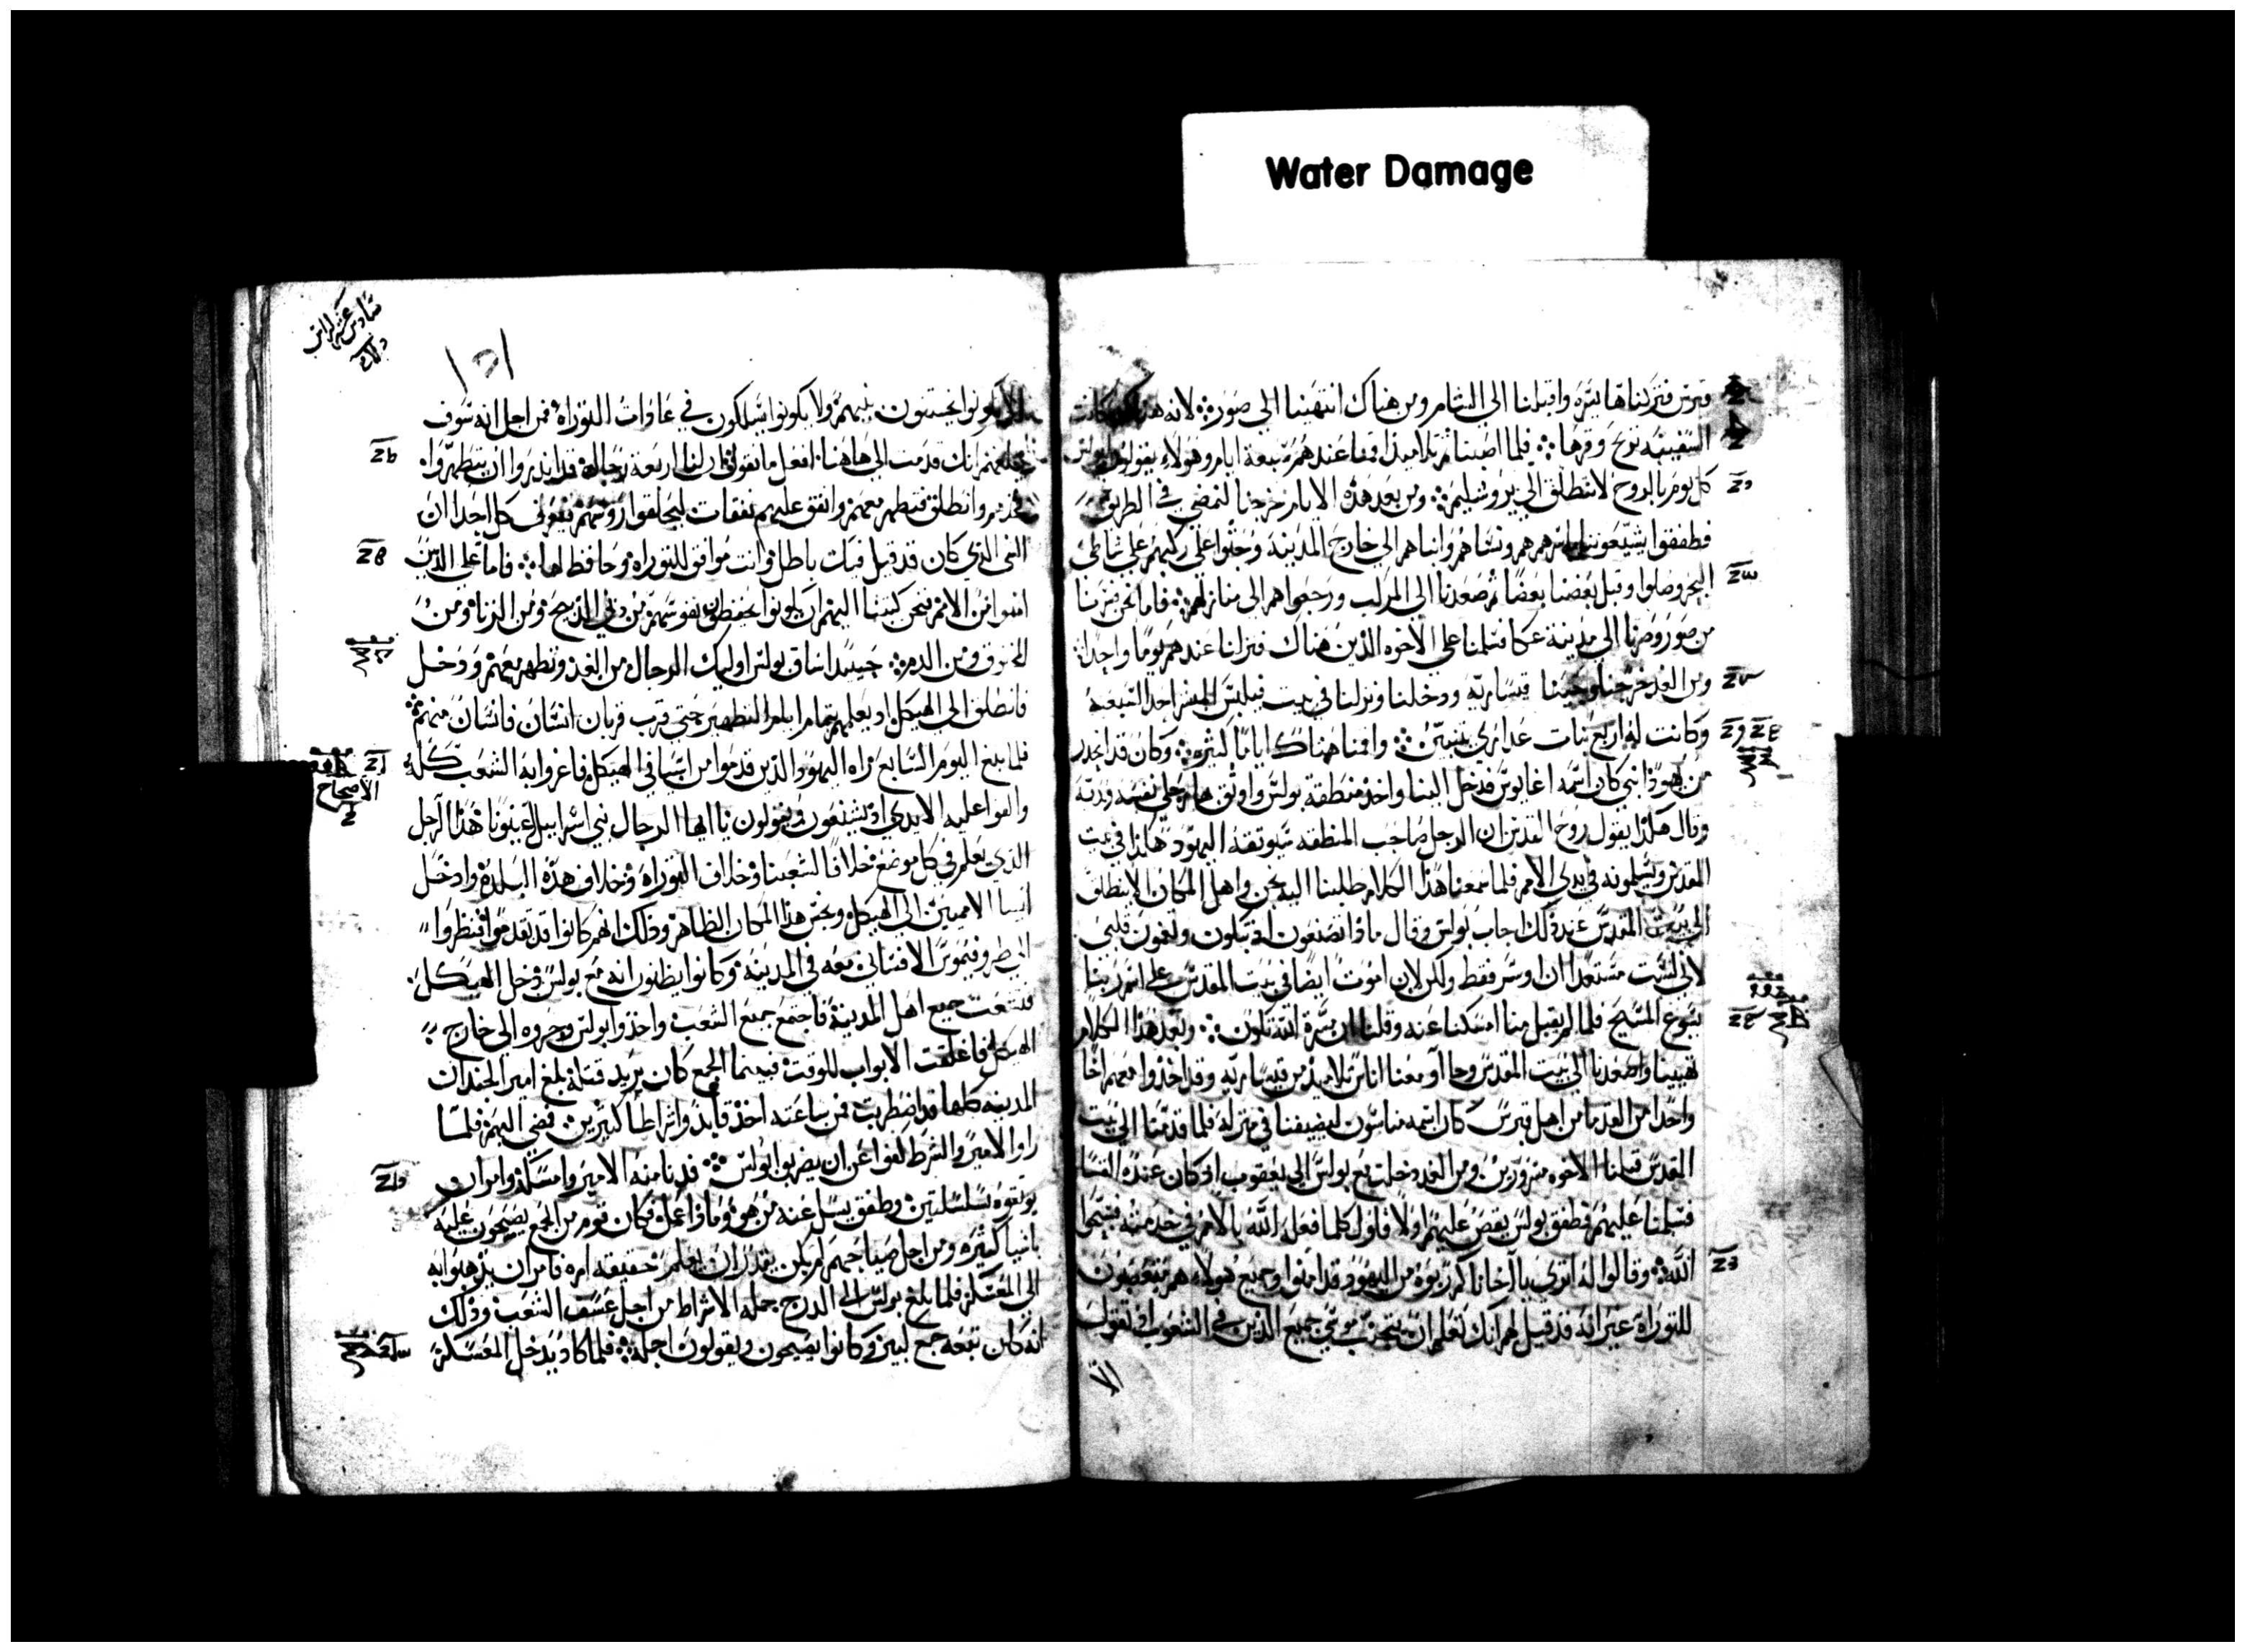 Water Damage
قبرس فتركناها يسره واقبلنا الى الشام ومن هناك انتهينا الى صور لانه كانت
السفينه تريح وقرها فلما اصبنا ثم تلاميذ اقمنا عندهم سبعة ايام وهولاء يقولون لبولس
كل يوم بالروح لا تنطلق الى يروشليم ومن بعد هذه الايام خرجنا لنمضي في الطريق
فطفقوا يشيعوننا باسرهم هم ونساهم وابناهم الى خارج المدينة وجثوا على ركبهم على شاطى
البحر وصلوا وقبل بعضنا بعضا ثم صعدنا الى المركب ورجعوا هم الى منازلهم فاما نحن فسرنا
من صور وصرنا الى مدينة عكا فسلمنا على الاخوه الذين هناك فنزلنا عندهم يوما واحدا
ومن الغد خرجنا وجينا قيساريه ودخلنا ونزلنا في بيت فيلبس المبشر احد السبعه
وكانت له اربع بنات عذارى يتنبين واقمنا هناك اياما كثيره وكان قد انحدر
من يهوذا نبي كان اسمه اغابوس فدخل الينا واخذ منطقة بولس واوثق بها رجلي نفسه ويديه
وقال هكذا يقول روح القدس ان الرجل صاحب المنطقه سيوثقه اليهود هكذا في بيت
المقدس ويسلمونه في يدي الامم فلما سمعنا هذا الكلام طلبنا اليه نحن واهل المكان الا ينطلق
الى بيت المقدس عند ذلك اجاب بولس وقال ماذا تصنعون اذ تبكون وتغمون قلبي
لاني لست مستعدا ان اوسر فقط ولكن لان اموت ايضا في بيت المقدس على اسم ربنا
يسوع المسيح فلما لم يقبل منا امسكنا عنه وقلنا ان مسرة الله تكون وبعد هذا الكلام
تهيينا وصعدنا الى بيت المقدس وجاآو معنا اناس تلاميذ من قيساريه وقد اخذوا معهم اخا
واحدا من القدما من اهل قبرس كان اسمه مناسون ليضيفنا في منزله فلما قدمنا الى بيت
المقدس قبلنا الاخوه مسرورين ومن الغد دخلت مع بولس الى يعقوب اذ كان عنده القسا
فسلمنا عليهم فطفق بولس يقص عليهم اولا فاول كلما فعله الله بالامم في خدمته فسبحوا
الله وقالوا له اترى يا اخانا كم ربوه من اليهود قد امنوا وجميع هولاء هم يتعصبون
للتوراة غير انه قد قيل لهم انك تعلم ان يتجنب موسى جميع الذين في الشعوب اذ تقول
الا
سادس عشر
الا يكونوا يختنون بنيهم ولا يكونوا يسلكون في عادات التوراة فمن اجل انه سوف
انك قدمت الى هاهنا افعل ما نقول لك ان لنا اربعة رجال قد نذروا ان يتطهروا
فخذهم وانطلق فتطهر معهم وانفق عليهم نفقات ليحلقوا روسهم فيعرف كل احد ان
الذي كان قد قيل فيك باطل وانت موافق للتوراه وحافظ لها فاما على الذين
امنوا من الامم فنحن كتبنا اليهم ان يكونوا يحفظون نفوسهم من الذبيح ومن الزنا ومن
المخنوق ومن الدم حينيذ ساق بولس اوليك الرجال من الغد وتطهر معهم ودخل
فانطلق الى الهيكل اذ يعلمهم تمام ايام التطهير حتى قرب قربان انسان فانسان منهم
فلما بلغ اليوم السابع راه اليهود الذين قدموا من اسيا في الهيكل فاغروا به الشعب كله
الاصحاح
والقوا عليه الايدي اذ يستغون ويقولون يا ايها الرجال بني اسراييل اعينونا هذا الرجل
الذي يعلم في كل موضع خلافا لشعبنا وخلاف التوراه وخلاف هذه البلدة وادخل
ايضا الامميين الى الهيكل ونجس هذا المكان الطاهر وذلك انهم كانوا قد تقدموا فنظروا
الى طروفيموس الافساني معه في المدينه وكانوا يظنون انه مع بولس دخل الهيكل
فتشعبت جميع اهل المدينة فاجتمع جميع الشعب واخذوا بولس وجروه الى خارج
الهيكل فاغلقت الابواب للوقت فبينما الجمع كان يريد قتله بلغ امير الجند ان
المدينه كلها قد اضطربت فمن ساعته اخذ قايدا واشراطا كثيرين فمضى اليهم فلما
راوا الامير والشرط كفوا عن ان يضربوا بولس فدنا منه الامير وامسكه وامر ان
يوثقوه بسلسلتين وطفق يسل عنه من هو وماذا عمل فكان قوم من الجمع يصيحون عليه
باشيا كثيره ومن اجل صياحهم لم يكن يقدر ان يعلم حقيقه امره فامر ان يذهبوا به
الى المعسكر فلما بلغ بولس الى الدرج حمله الاشراط من اجل عسف الشعب وذلك
انه كان تبعه جمع كبير وكانوا يصيحون ويقولون احمله فلما كاد يدخل المعسكر